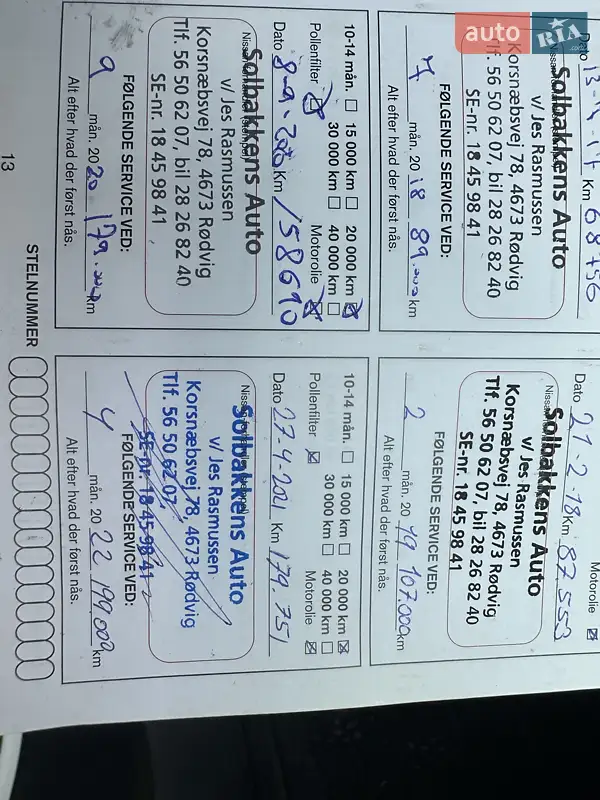 Dato Km
Solbakkens Auto
v/ Jes Rasmussen
Korsnæbsvej 78, 4673 Rødvig
Tlf. 56 50 62 07, bil 28 26 82 40
SE-nr. 18 45 98 41
FØLGENDE SERVICE VED:
7 mån. 20 18 89.000 km
Alt efter hvad der først nås.
Motorolie
Dato 21-2-18 Km 87.553
Solbakkens Auto
v/ Jes Rasmussen
Korsnæbsvej 78, 4673 Rødvig
Tlf. 56 50 62 07, bil 28 26 82 40
SE-nr. 18 45 98 41
FØLGENDE SERVICE VED:
2 mån. 20 19 107.000 km
Alt efter hvad der først nås.
10-14 mån. 15 000 km 20 000 km
30 000 km 40 000 km
Pollenfilter Motorolie
Dato 8-9-2020 Km 158690
Solbakkens Auto
v/ Jes Rasmussen
Korsnæbsvej 78, 4673 Rødvig
Tlf. 56 50 62 07, bil 28 26 82 40
SE-nr. 18 45 98 41
FØLGENDE SERVICE VED:
9 mån. 20 20 179.000 km
Alt efter hvad der først nås.
10-14 mån. 15 000 km 20 000 km
30 000 km 40 000 km
Pollenfilter Motorolie
Dato 27-4-2021 Km 179.751
Solbakkens Auto
v/ Jes Rasmussen
Korsnæbsvej 78, 4673 Rødvig
Tlf. 56 50 62 07,
SE-nr. 18 45 98 41
FØLGENDE SERVICE VED:
4 mån. 20 22 199.000 km
Alt efter hvad der først nås.
13
STELNUMMER
auto RIA
.com